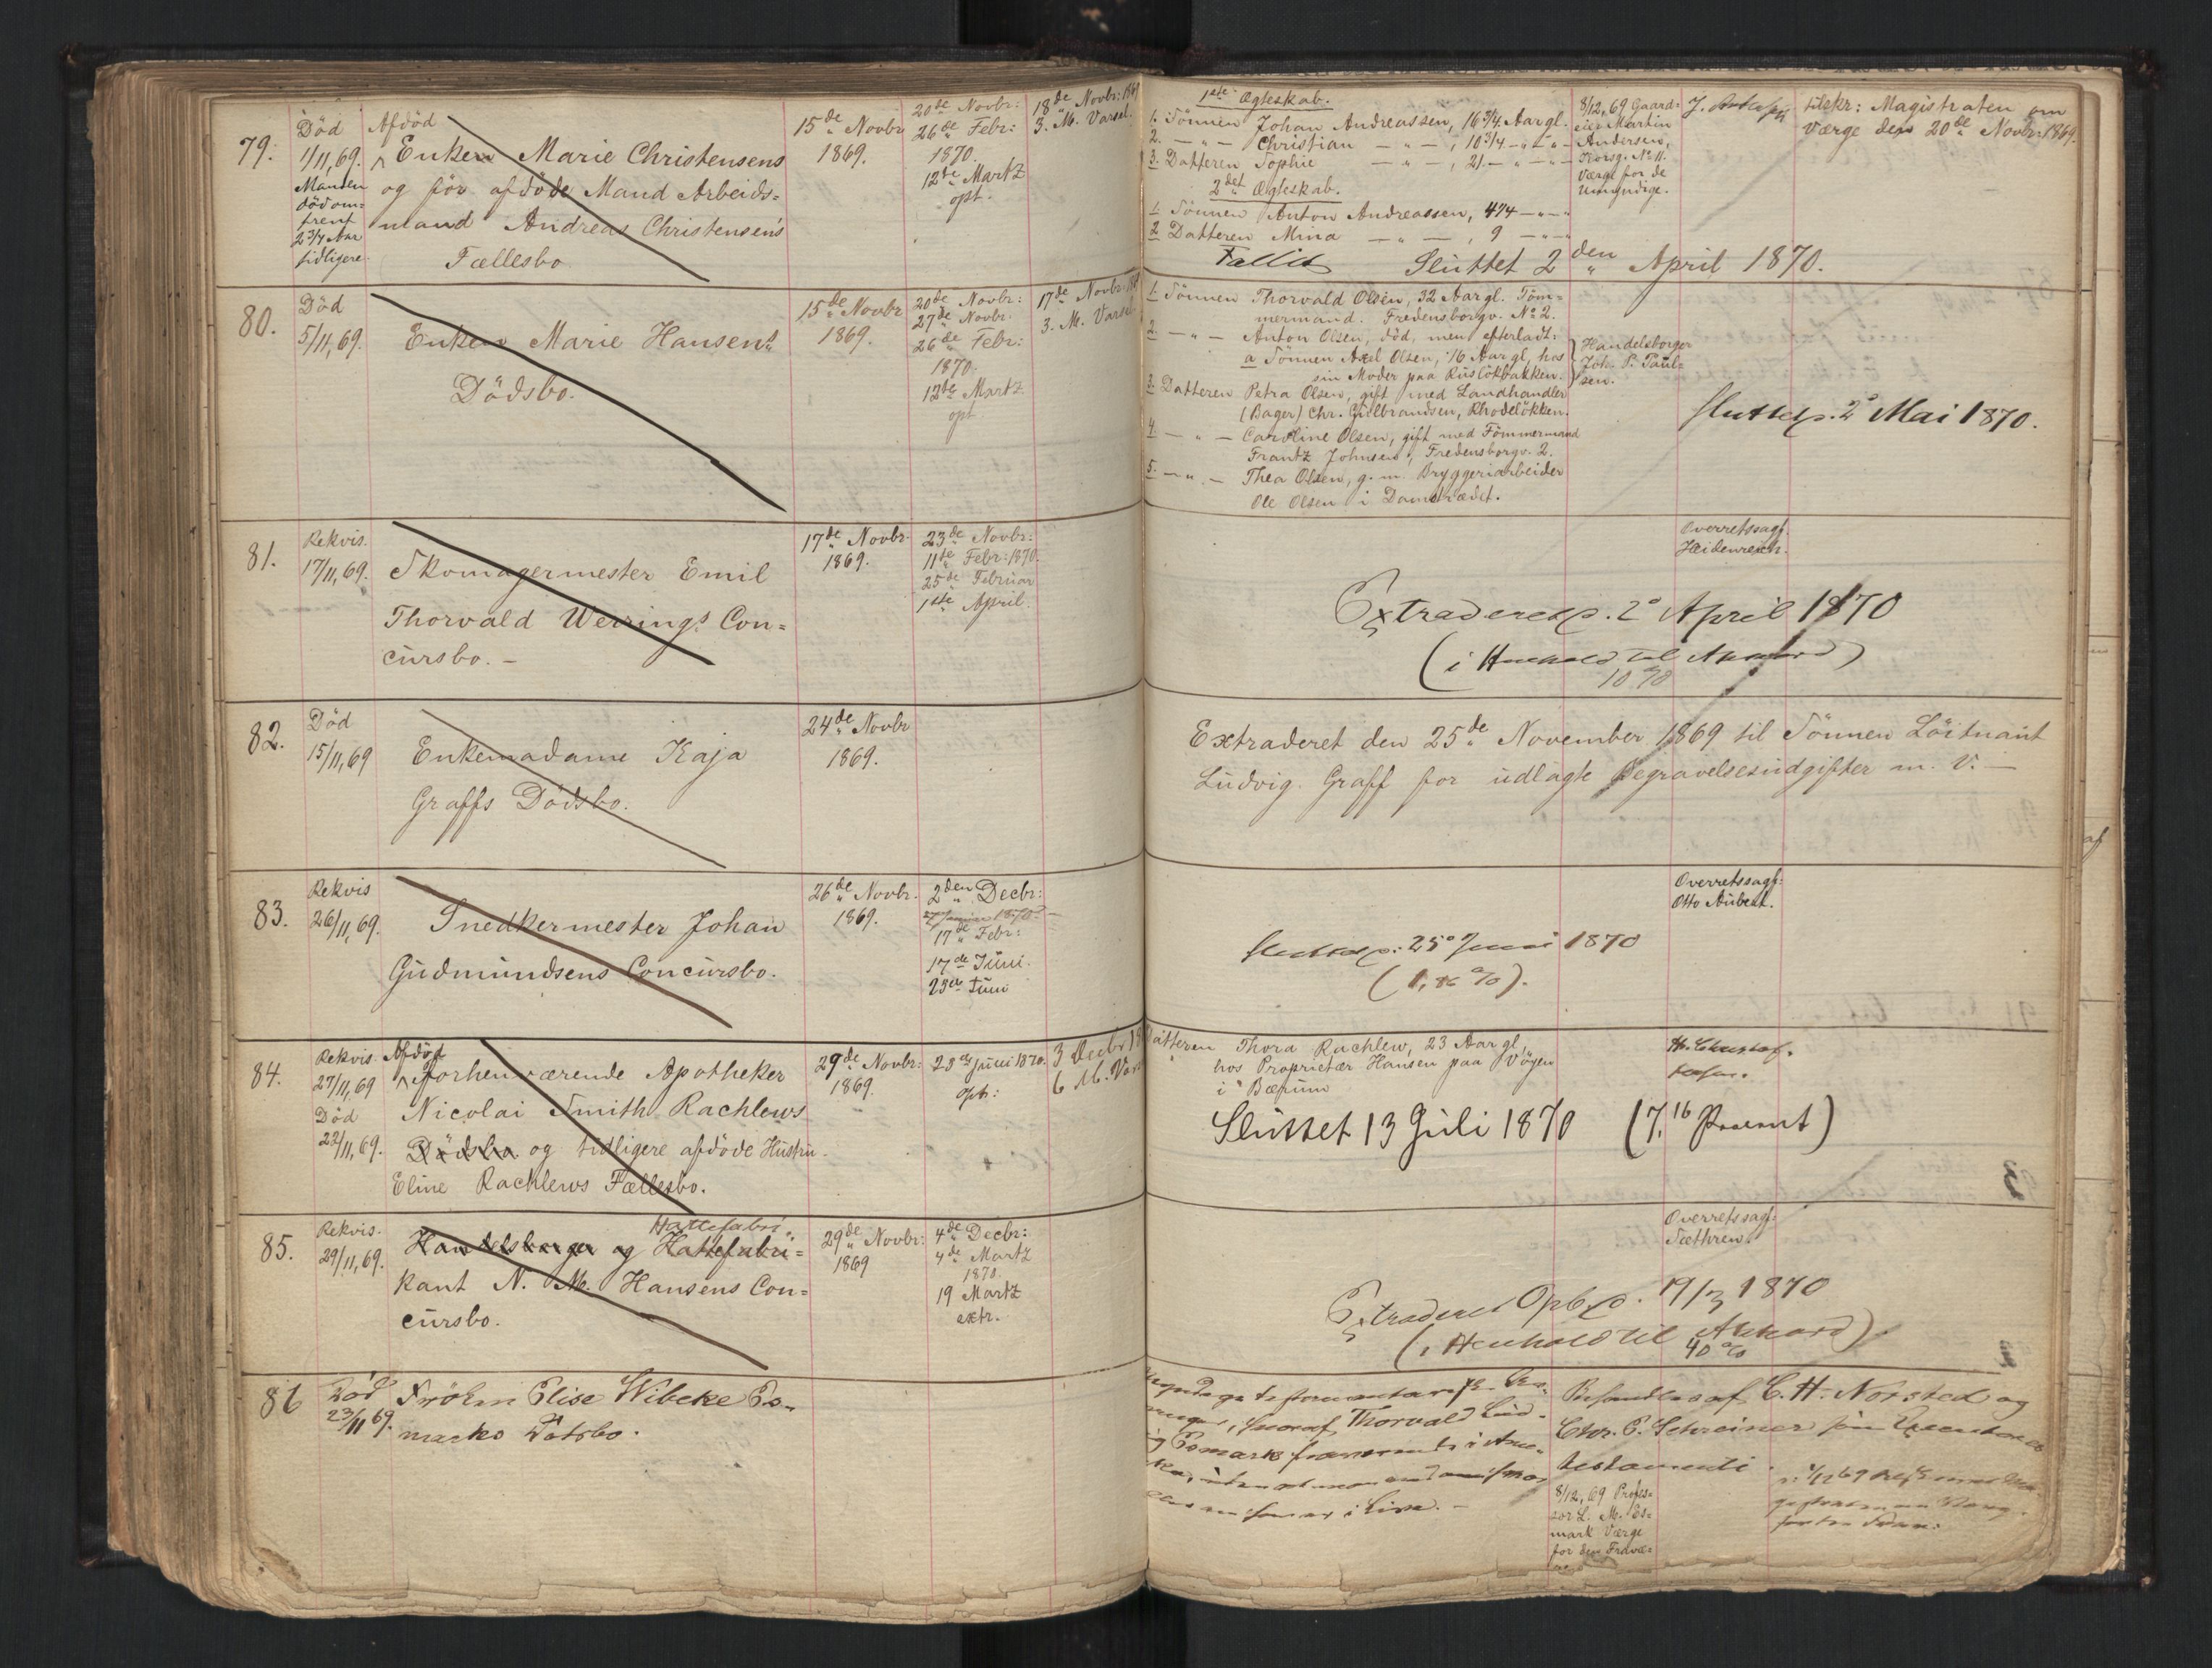 79.
Död
1/11, 69.
Manden
död om=
trent
2 3/4 Aar
tidligere.
Afdöd
Enken Marie Christensens
og för afdöde Mand Arbeids=
mand Andreas Christensens
Fællesbo
15de Novbr
1869.
20de Novbr:
26de Febr:
1870.
12te Martz
opt.
18de Novbr: 1869
3. M. Varsel.
1ste Ægteskab.
1. Sönnen Johan Andreassen, 16 3/4 Aar gl.
2. — „ — Christian — „ — , 10 3/4 — „ — „ —
3. Datteren Sophie — „ — , 21 — „ — „ —
2det Ægteskab.
1. Sönnen Anton Andreassen, 4 3/4 — „ — „
2. Datteren Mina — „ — , 9 — „ — „
Fallit Sluttet 2den April 1870.
8/12, 69 Gaard=
eier Martin
Andersen,
Korsg. No 11.
Værge for de
Umyndige.
tilskr: Magistraten om
Værge den 20de Novbr: 1869.
80.
Död
5/11, 69.
Enken Marie Hansens
Dödsbo.
15de Novbr
1869.
20de Novbr:
27de Novbr.
26de Febr:
1870.
12te Martz
opt.
17de Novbr: 1869
3. M. Varsel
1. Sönnen Thorvald Olsen, 32 Aar gl. Töm=
mermand. Fredensborgv. No 2.
2. — „ — Anton Olsen, död, men efterladt:
a Sönnen Axel Olsen, 16 Aar gl, hos
sin Moder paa Ruslökbakken.
3. Datteren Petra Olsen, gift med Landhandler
(Bager) Chr. Gulbrandsen, Rhodelökken.
4. — „ — Caroline Olsen, gift med Tömmermand
Frantz Johnsen, Fredensborgv. 2.
5. — „ — Thea Olsen, g. m. Bryggeriarbeider
Ole Olsen i Damstrædet.
Handelsborger
Joh. P. Paul=
sen.
Sluttet p. 2o Mai 1870.
81.
Rekvis.
17/11, 69.
Skomagermester Emil
Thorvald Werrings Con=
cursbo. —
17de Novbr.
1869.
23de Novbr:
11te Febr: 1870.
25de Februar
1ste April.
Overretssagf.
Heidenreich.
Extraderet p. 2o April 1870
(i Henhold til Akkord)
10 %
82.
Död
15/11, 69
Enkemadame Kaja
Graffs Dödsbo.
24de Novbr
1869.
Extraderet den 25de November 1869 til Sönnen Löitnant
Ludvig Graff for udlagte Begravelsesudgifter m. V. —
83.
Rekvis
26/11, 69.
Snedkermester Johan
Gudmundsens Concursbo.
26de Novbr.
1869.
2den Decbr:
17de Febr:
17de Juni.
23de Juni
Overretssagf:
Otto Aubert.
Sluttet p. 25o Juni 1870
84.
Rekvis.
27/11, 69
Död
22/11, 69.
Afdöd
forhenværende Apotheker
Nicolai Smith Rachlews
Dödsbo og tidligere afdöde Hustru
Eline Rachlews Fællesbo.
29de Novbr:
1869.
23de Juni 1870.
opt:
3 Decbr 18
6 M. Var
Datteren Thora Rachlew, 23 Aar gl,
hos Proprietær Hansen paa Vöyen
i Bærum
Sluttet 13 Juli 1870 (7,16 Procent)
85.
Rekvis.
29/11, 69.
Hattefabri
Handelsborger og Hattefabri=
kant N. M. Hansens Con=
cursbo.
29de Novbr:
1869
4de Decbr:
4de Martz
1870.
19 Martz
extr.
Overretssagf:
Sæthren.
Extraderet Opb. p. 19/3 1870
(i Henhold til Akkord).
40 %
86
Död
23/11 69.
Fröken Elise Wibeke Es=
marks Dödsbo.
Thorvald Lud=
ig Esmark
Behandles af C. H. Norsted og
Chr. P. Schreiner som Executores
testamenti.
8/12, 69 Profes=
sor L. M. Es=
mark Værge
for den Fravæ=